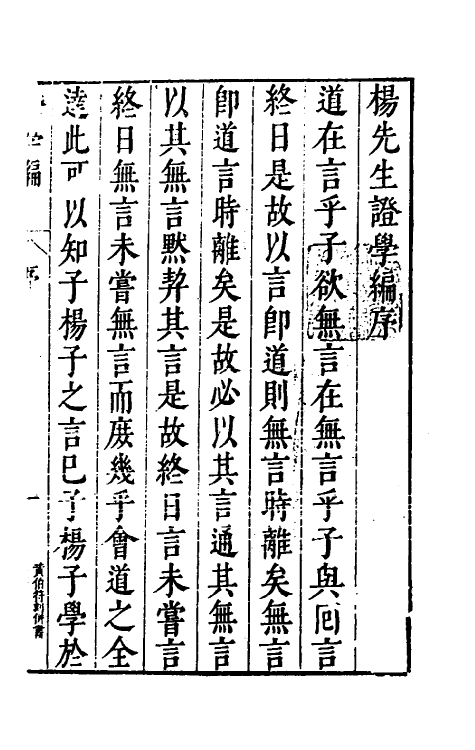 楊先生證學編序
道在言乎子欲無言在無言乎子與回言
終日是故以言卽道則無言時離矣無言
卽道言時離矣是故必以其言通其無言
以其無言黙契其言是故終日言未嘗言
終日無言未嘗無言而庻幾乎會道之全
逹此可以知子楊子之言已子楊子學於
編
序
一
黃伯符刻併書